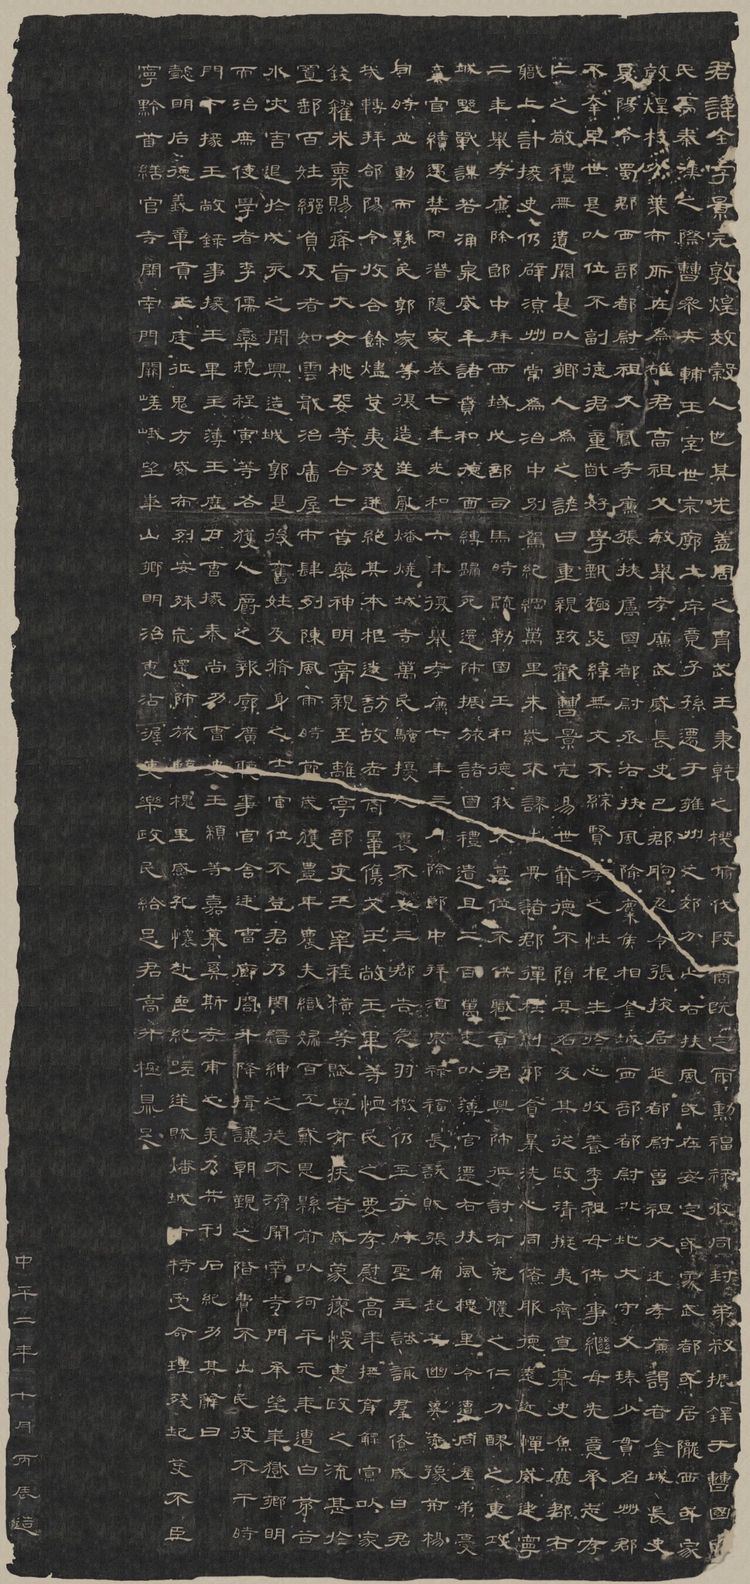 君諱全字景完敦煌效穀人也其先蓋周之冑武王秉乾之機翦伐殷商既定爾勳福祿攸同封弟叔振鐸于曹國因
氏焉秦漢之際曹參夾輔王室世宗廓土斥竟子孫遷于雍州之郊分止右扶風或在安定或處武都或居隴西或家
敦煌枝分葉布所在為雄君高祖父敏舉孝廉武威長史巴郡朐忍令張掖居延都尉曾祖父述孝廉謁者金城長史
夏陽令蜀郡西部都尉祖父鳳孝廉張掖屬國都尉丞右扶風隃麋侯相金城西部都尉北地大守父琫少貫名州郡
不幸早世是以位不副德君童齔好學甄極毖緯無文不綜賢孝之性根生於心收養季祖母供事繼母先意承志存
亡之敬禮無遺闕是以鄉人為之諺曰重親致歡曹景完易世載德不隕其名及其從政清擬夷齊直慕史魚歷郡右
職上計掾史仍辟涼州常為治中別駕紀綱萬里朱紫不謬出典諸郡彈枉糾邪貪暴洗心同僚服德遠近憚威建寧
二年舉孝廉除郎中拜西域戊部司馬時疏勒國王和德弒父篡位不供職貢君興師征討有吮膿之仁分醪之惠攻
城野戰謀若涌泉威牟諸賁和德面縛歸死還師振旅諸國禮遺且二百萬悉以薄官遷右扶風槐里令遭同產弟憂
棄官續遇禁冈潛隱家巷七年光和六年復舉孝廉七年三月除郎中拜酒泉祿福長訞賊張角起兵幽冀兗豫荊楊
同時並動而縣民郭家等復造逆亂燔燒城寺萬民騷擾人褱不安三郡告急羽檄仍至于時聖主諮諏群僚咸曰君
哉轉拜郃陽令收合餘燼芟夷殘迸絕其本根遂訪故老商量儁艾王敞王畢等恤民之要存慰高年撫育鰥寡以家
錢糴米粟賜癃盲大女桃婓等合七首藥神明膏親至離亭部吏王宰程橫等賦與有疾者咸蒙瘳悛惠政之流甚於
置郵百姓繦負反者如雲戢治廧屋市肆列陳風雨時節歲獲豐年農夫織婦百工戴恩縣前以河平元年遭白茅谷
水災害退於戊亥之間興造城郭是後舊姓及脩身之士官位不登君乃閔縉紳之徒不濟開南寺門承望華嶽鄉明
而治庶使學者李儒欒規程寅等各獲人爵之報廓廣聽事官舍廷曹廊閤升降揖讓朝覲之階費不出民役不干時
門下掾王敞錄事掾王畢主薄王歷戶曹掾秦尚功曹史王顓等嘉慕奚斯考甫之美乃共刊石紀功其辭曰
懿明后德義章貢王庭征鬼方威布烈安殊荒還師旅臨槐里感孔懷赴喪紀嗟逆賊燔城市特受命理殘圮芟不臣
寧黔首繕官寺開南門闕嵯峨望華山鄉明治惠沾渥吏樂政民給足君高升極鼎足
中平二年十月丙辰造